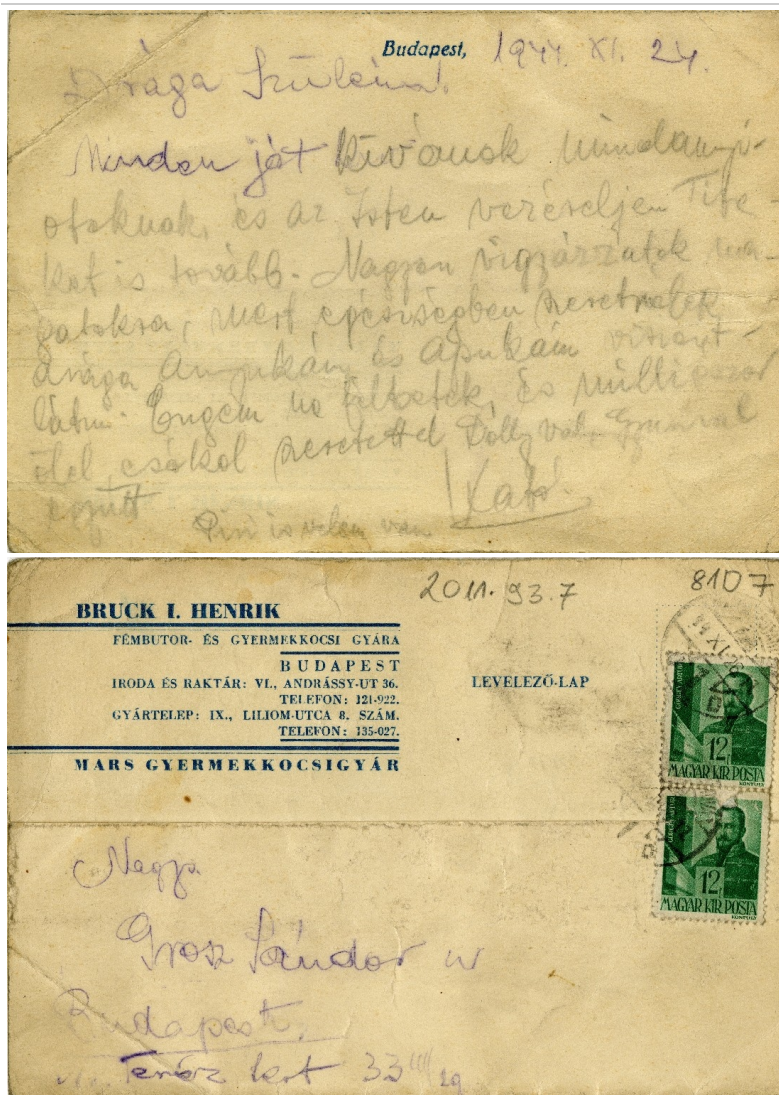 Budapest, 1944. XI. 24.
Drága Szüleim!
Minden jót kívánok mindannyi-
otoknak, és az Isten vezéreljen Tite-
ket is tovább. Nagyon vigyázzatok ma-
gatokra, mert egészségben szeretnélek
drága Anyukám és Apukám viszont-
látni. Engem ne féltsetek, és milliószor
ölel, csókol szeretettel Dollyval,
együtt Kató.
Piri is velem van
2011.93.7
8107
BRUCK I. HENRIK
FÉMBUTOR- ÉS GYERMEKKOCSI GYÁRA
BUDAPEST
IRODA ÉS RAKTÁR: VI., ANDRÁSSY-UT 36.
TELEFON: 121-922.
GYÁRTELEP: IX., LILIOM-UTCA 8. SZÁM.
TELEFON: 135-027.
MARS GYERMEKKOCSIGYÁR
LEVELEZŐ-LAP
GÖRGEY ARTUR
12
MAGYAR KIR. POSTA
GÖRGEY ARTUR
12
MAGYAR KIR. POSTA
Nagys
Grosz Sándor
Budapest.
Teréz krt 33